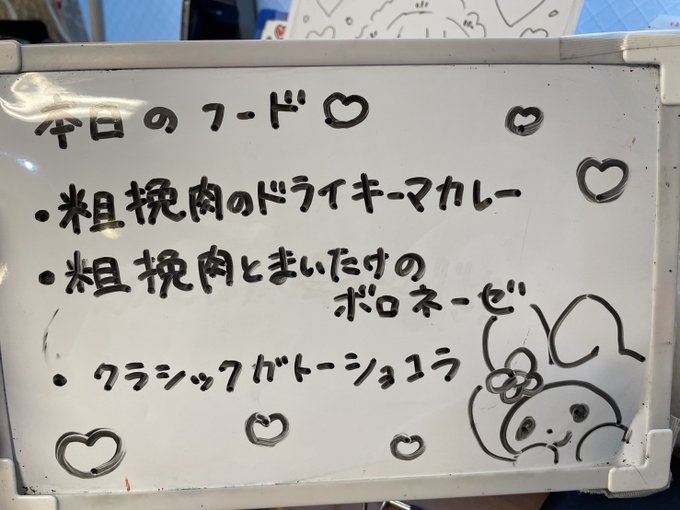 本日のフード♡
・粗挽肉のドライキーマカレー
・粗挽肉とまいたけの
ボロネーゼ
・クラシックガトーショコラ